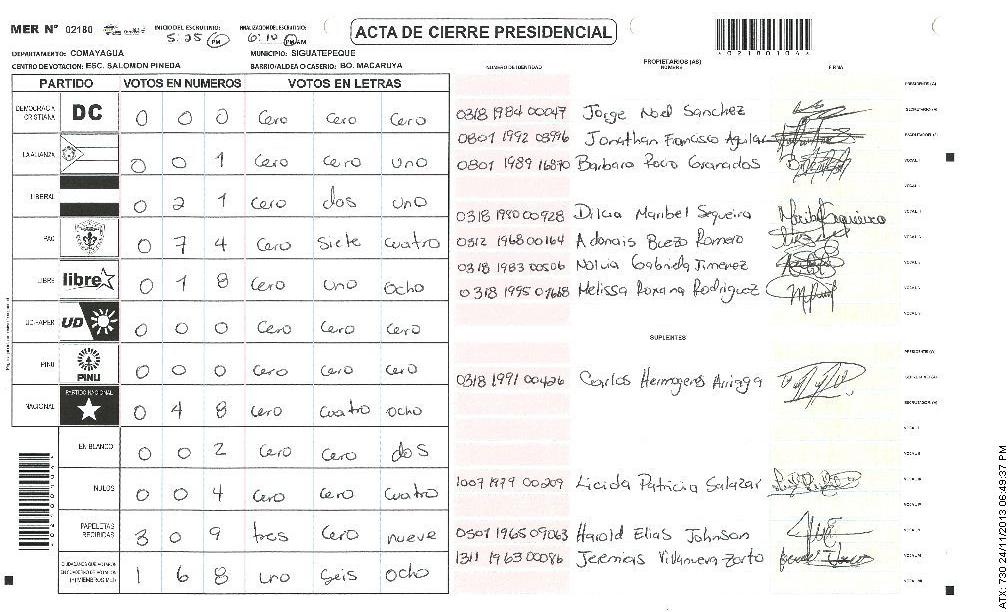 MER Nº 02180 INICIO DEL ESCRUTINIO: 5:25 PM FINALIZACION DEL ESCRUTINIO: 6:10 PM AM
ACTA DE CIERRE PRESIDENCIAL
DEPARTAMENTO: COMAYAGUA MUNICIPIO: SIGUATEPEQUE
CENTRO DE VOTACION: ESC. SALOMON PINEDA BARRIO/ALDEA O CASERIO: BO. MACARUYA
NUMERO DE IDENTIDAD PROPIETARIOS (AS) NOMBRE FIRMA
PARTIDO VOTOS EN NUMEROS VOTOS EN LETRAS
DEMOCRACIA CRISTIANA DC 0 0 0 Cero Cero Cero
LA ALIANZA 0 0 1 Cero Cero uno
LIBERAL 0 2 1 Cero dos uno
PAC 0 7 4 Cero Siete Cuatro
LIBRE libre 0 1 8 Cero uno ocho
UD-FAPER UD 0 0 0 Cero Cero Cero
PINU PINU 0 0 0 Cero Cero Cero
NACIONAL PARTIDO NACIONAL 0 4 8 Cero Cuatro ocho
EN BLANCO 0 0 2 Cero Cero dos
NULOS 0 0 4 Cero Cero Cuatro
PAPELETAS RECIBIDAS 3 0 9 tres Cero nueve
1 6 8 uno Seis ocho
0318 1984 00047 Jorge Noel Sanchez
0801 1992 08996 Jonathan Francisco Aguilar
0801 1989 16870 Barbara Rocio Granados
0318 1980 00928 Dilcia Maribel Sequeira
0312 1968 00164 Adonais Buezo Romero
0318 1983 00506 Nolvia Gabriela Jimenez
0318 1995 01668 Melissa Roxana Rodriguez
SUPLENTES
0318 1991 00426 Carlos Hermogenes Arriaga
1007 1979 00209 Licida Patricia Salazar
0501 1965 09063 Harold Elias Johnson
1311 1963 00086 Jeremias Villanueva Zorto
ATX: 730 24/11/2013 06:49:37 PM